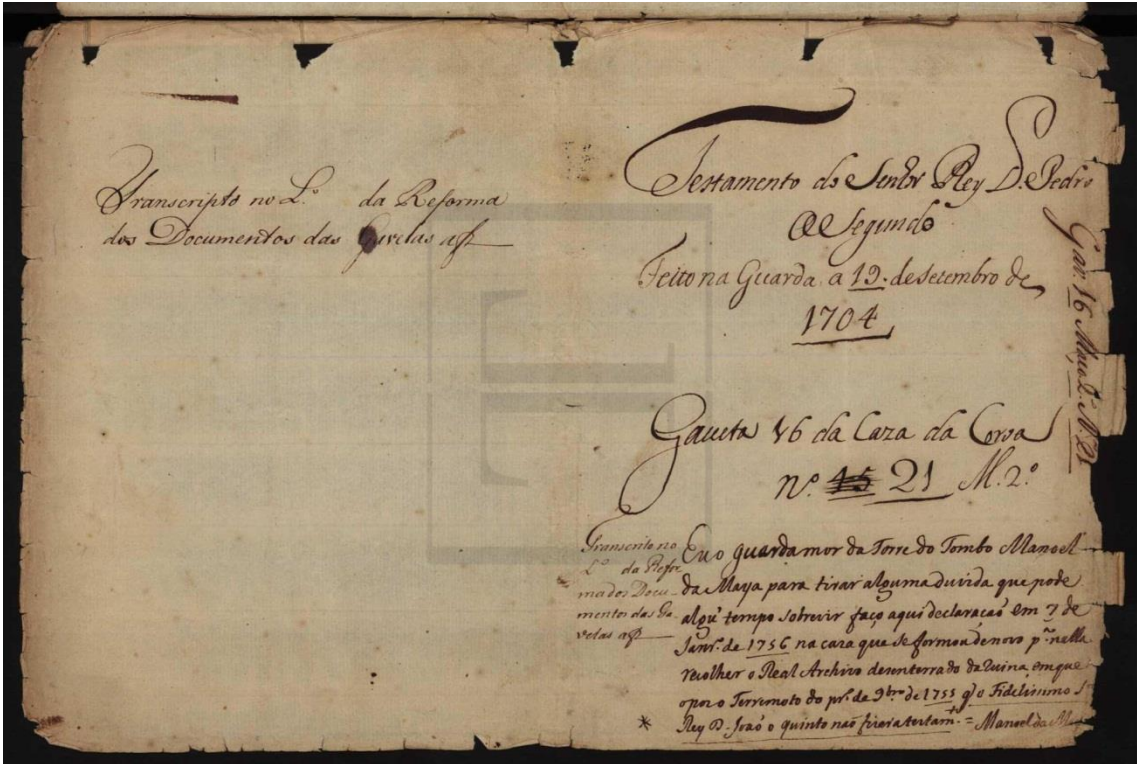 Transcripto no L.º da Reforma
dos Documentos das Gavetas a f
Testamento do Senhor Rey D. Pedro
O Segundo
Feito na Guarda a 19. de setembro de
1704
Gav. 16 Maço 2.º N. 21
Gaveta 16 da Caza da Coroa
nº. 15 21 M. 2.º
Transcrito no
L.º da Refor
ma dos Docu-
mentos das Ga-
vetas a f
Eu o guarda mor da Torre do Tombo Manoel
da Maya para tirar alguma duvida que pode
algu' tempo sobrevir faço aqui declaração em 7 de
Janr.º de 1756 na caza que se formou de novo p.ª nella
recolher o Real Archivo desenterrado da Ruina em que
o poz o Terremoto do pr.º de 9bro de 1755 q o Fidelissimo S.
* Rey D. João o quinto não fizera testam.to = Manoel da M